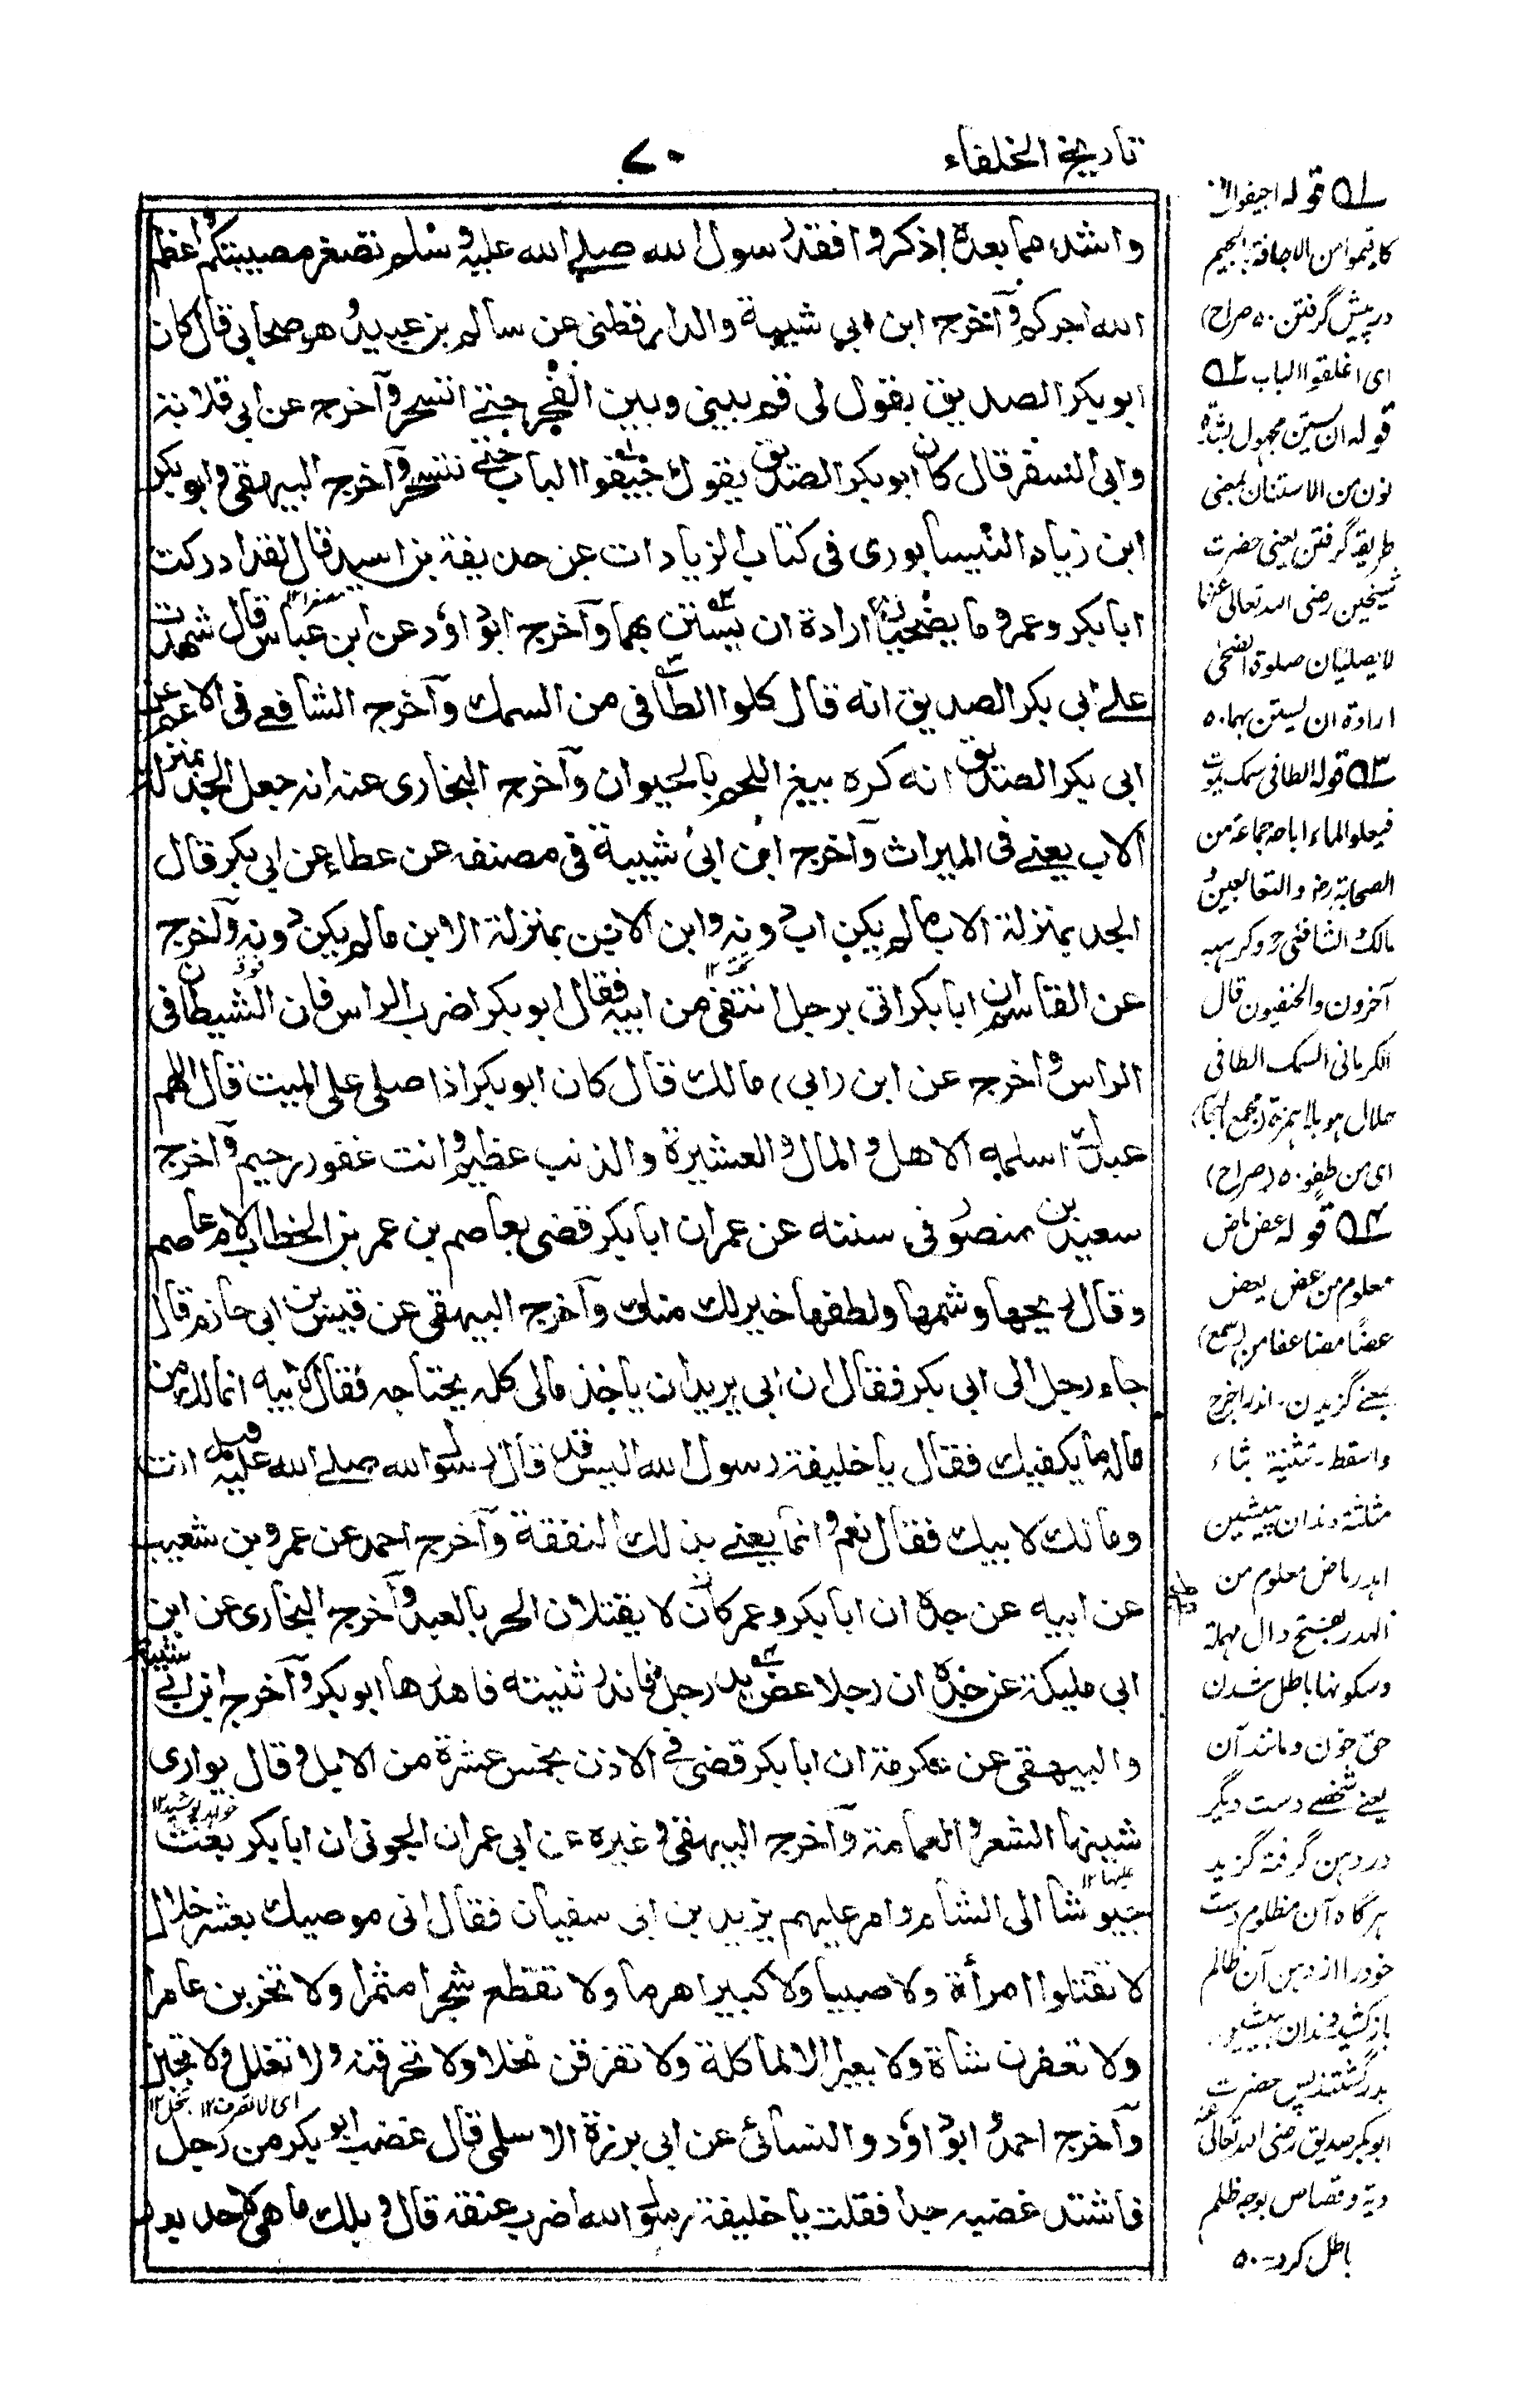 تاريخ الخلفاء
٧٠
واشد مما بعده اذكروا فقد رسول الله صلى الله عليه وسلم تصغر مصيبتكم واعظم
الله اجركم وآخرج ابن ابي شيبة والدارقطني عن سالم بن عبيد وهو صحابي قال كان
ابو بكر الصديق يقول لى قم بيني وبين الفجر حتى اتسحر وآخرج عن ابي قلابة
وابي السفر قال كان ابو بكر الصديق يقول اجيفوا الباب حتى نتسحر وآخرج البيهقي وابو بكر
ابن زياد النيسابورى فى كتاب الزيادات عن حذيفة بن اسيد قال لقد ادركت
ابا بكر وعمر وما يضحيان ارادة ان يستن بهما وآخرج ابو داود عن ابن عباس قال شهدت
على ابي بكر الصديق انه قال كلوا الطافى من السمك وآخرج الشافعى فى الام عن
ابي بكر الصديق انه كره بيع اللحم بالحيوان وآخرج البخارى عنه انه جعل الجد بمنزلة
الاب يعنى فى الميراث وآخرج ابن ابي شيبة فى مصنفه عن عطاء عن ابي بكر قال
الجد بمنزلة الاب مالم يكن اب دونه وابن الابن بمنزلة الابن مالم يكن دونه وآخرج
عن القاسم ان ابا بكر اتى برجل انتفى من ابيه فقال ابو بكر اضرب الراس فان الشيطان فى
الراس وآخرج عن ابن (ابي) مالك قال كان ابو بكر اذا صلى على الميت قال اللهم
عبدك اسلمه الاهل والمال والعشيرة والذنب عظيم وانت غفور رحيم وآخرج
سعيد بن منصور فى سننه عن عمر ان ابا بكر قضى بعاصم بن عمر بن الخطاب لام عاصم
وقال ريحها وشمها ولطفها خير لك منك وآخرج البيهقى عن قيس بن ابي حازم قال
جاء رجل الى ابي بكر فقال ان ابي يريد ان ياخذ مالى كله يحتاجه فقال لابيه انما لك من
ماله ما يكفيك فقال يا خليفة رسول الله اليس قد قال رسول الله صلى الله عليه وسلم انت
ومالك لابيك فقال نعم وانما يعنى بذلك النفقة وآخرج احمد عن عمرو بن شعيب
عن ابيه عن جده ان ابا بكر وعمر كانا لا يقتلان الحر بالعبد وآخرج البخارى عن ابن
ابي مليكة عن جده ان رجلا عض يد رجل فاندر ثنيته فاهدرها ابو بكر وآخرج ابن ابي شيبة
والبيهقى عن عكرمة ان ابا بكر قضى فى الاذن بخمس عشرة من الابل وقال يوارى
شينها الشعر والعمامة وآخرج البيهقى وغيره عن ابي عمران الجونى ان ابا بكر بعث
جيوشا الى الشام وامر عليهم يزيد بن ابى سفيان فقال انى موصيك بعشر خلال
لا تقتلوا امرأة ولا صبيا ولا كبيرا هرما ولا تقطع شجرا مثمرا ولا تخربن عامرا
ولا تعقرن شاة ولا بعيرا الا لماكلة ولا تفرقن نخلا ولا تحرقنه ولا تغلل ولا تجبن
وآخرج احمد وابو داود والنسائى عن ابي برزة الاسلمى قال غضب ابو بكر من رجل
فاشتد غضبه جدا فقلت يا خليفة رسول الله اضرب عنقه قال ويلك ما هى لاحد بعد
١ قوله اجيفوا الا
كاقيموا من الاجافة بالجيم
درپیش گرفتن ٥٠ صراح)
اى اغلقوا الباب ٢
قوله ان يستن مجهول بشدة
نون من الاستنان بمعنى
طریقہ گرفتن یعنی حضرت
شیخین رضی اللہ تعالی عنهما
لا يصليان صلوة الضحى
ارادة ان يستن بهما ٥٠
٣ قوله الطافى سمك يموت
فيعلو الماء اباحه جماعة من
الصحابة رض والتابعين و
مالك والشافعى رح وكرهه
آخرون والحنفيون قال
الكرمانى السمك الطافى
حلال هو بلا همزة (مجمع البحار)
اى من طفو ٥٠ (صراح)
٤ قوله عض ماض
معلوم من عض يعض
عضا مضاعفا من (سمع)
بمعنى گزیدن - اندر اخرج
واسقط - ثنية بثاء
مثلثة دندان پیشین
اهدر ماض معلوم من
الهدر بفتح دال مهملة
وسكونها باطل شدن
حق خون ومانند آن
یعنی شخصے دست دیگر
در دہن گرفتہ گزید
ہرگاہ آن مظلوم دست
خود را از دہن آن ظالم
باز کشید دندان پیشین
بدر گشتند پس حضرت
ابوبکر صدیق رضی اللہ تعالی عنه
دیۃ وقصاص بوجہ ظلم
باطل کرد - ٥٠